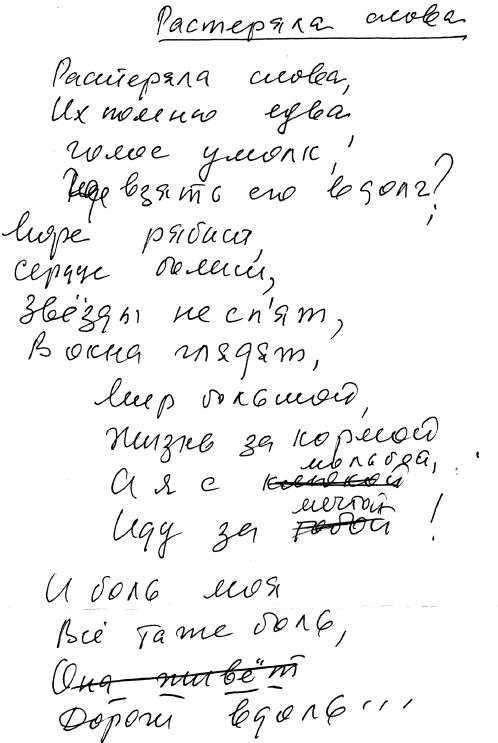 Растеряла слова
Растеряла слова,
Их помню едва
голос умолк,
Где взять его в долг?
Море рябит,
сердце болит,
Звёзды не спят,
В окна глядят,
Мир большой,
Жизнь за кормой
мольбой,
А я с
мечтой
Иду за !
И боль моя
Всё та же боль,
Она живёт
Дороги вдоль...